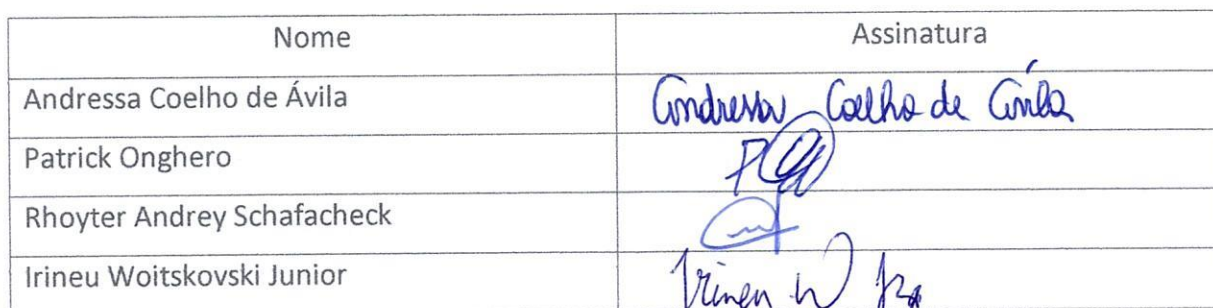 Nome Assinatura
Andressa Coelho de Ávila Andressa Coelho de Ávila
Patrick Onghero
Rhoyter Andrey Schafacheck
Irineu Woitskovski Junior Irineu W Jr